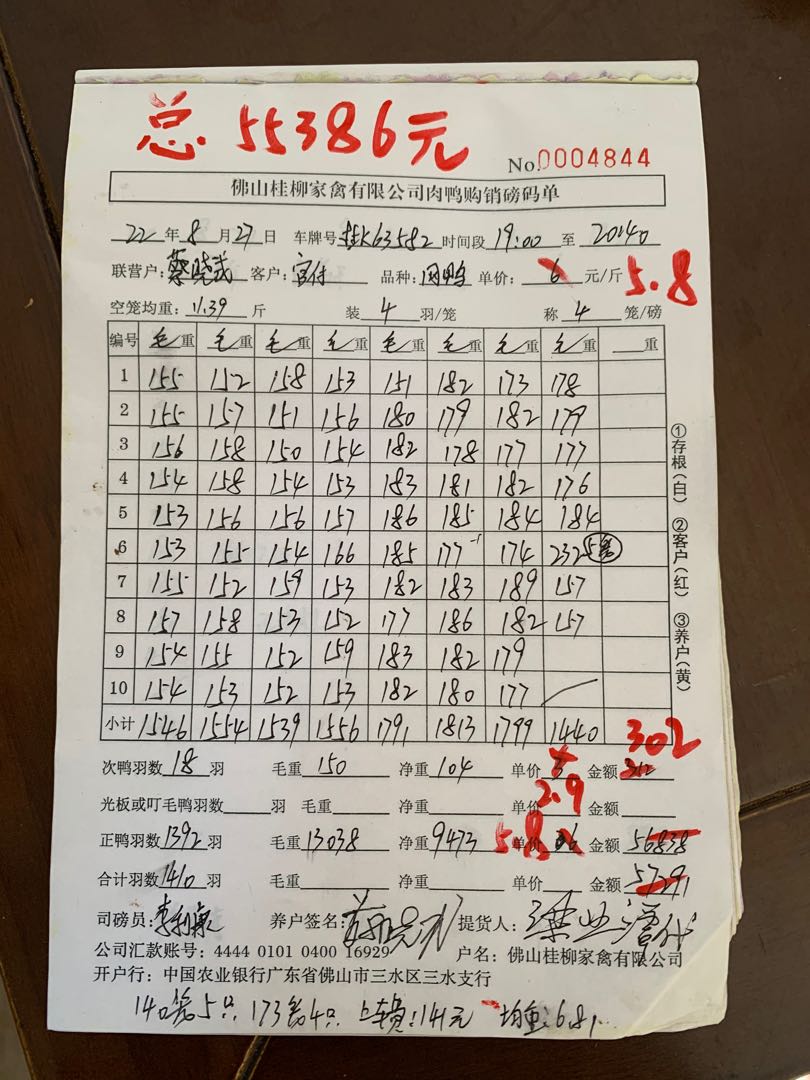 总 55386元
No.0004844
佛山桂柳家禽有限公司肉鸭购销磅码单
22年8月27日 车牌号桂K63582 时间段19:00至20:40
联营户: 客户: 品种: 单价:6元/斤 5.8
空笼均重:11.39斤 装4羽/笼 称4笼/磅
编号 毛重 毛重 毛重 毛重 毛重 毛重 毛重 毛重 重
1 155 152 158 153 151 182 173 178
2 155 157 151 156 180 179 182 179
3 156 158 150 154 182 178 177 177
4 154 158 154 153 183 181 182 176
5 153 156 156 157 186 185 184 184
6 153 155 154 166 185 177 -1 174 232 5笼
7 155 152 159 153 182 183 189 157
8 157 158 153 152 177 186 182 157
9 154 155 152 159 183 182 179
10 154 153 152 153 182 180 177
小计 1546 1554 1539 1556 1791 1813 1799 1440
302
次鸭羽数18羽 毛重150 净重104 单价3 金额312
2.9
光板或叮毛鸭羽数 羽 毛重 净重 单价 金额
正鸭羽数1392羽 毛重13038 净重9473 5.8 单价6 金额56838
合计羽数1410羽 毛重 净重 单价 金额57291
司磅员: 养户签名: 提货人:
公司汇款账号:4444 0101 0400 16929 户名:佛山桂柳家禽有限公司
开户行:中国农业银行广东省佛山市三水区三水支行
140笼5只 173笼4只 上车费:141元 均重:6.81
①存根(白) ②客户(红) ③养户(黄)